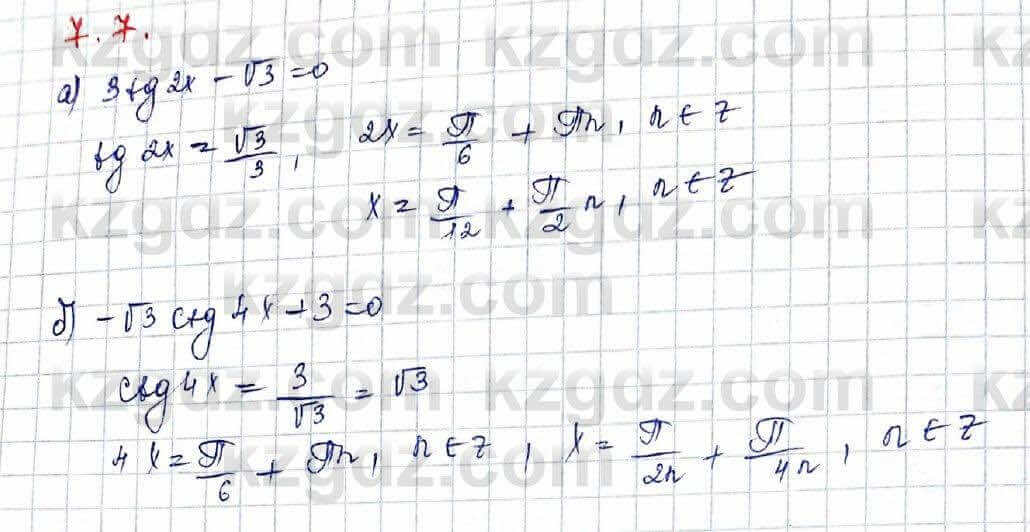 7.7.
а) 3tg 2x - √3 = 0
tg 2x = √3/3, 2x = π/6 + πn, n ∈ Z
x = π/12 + π/2 n, n ∈ Z
б) -√3 ctg 4x + 3 = 0
ctg 4x = 3/√3 = √3
4x = π/6 + πn, n ∈ Z, x = π/2n + π/4n, n ∈ Z
kzgdz.com kzgdz.com kzgdz.com
kzgdz.com
kzgdz.com kzgdz.com kzgdz.com
kzgdz.com
kzgdz.com kzgdz.com kzgdz.com
kzgdz.com